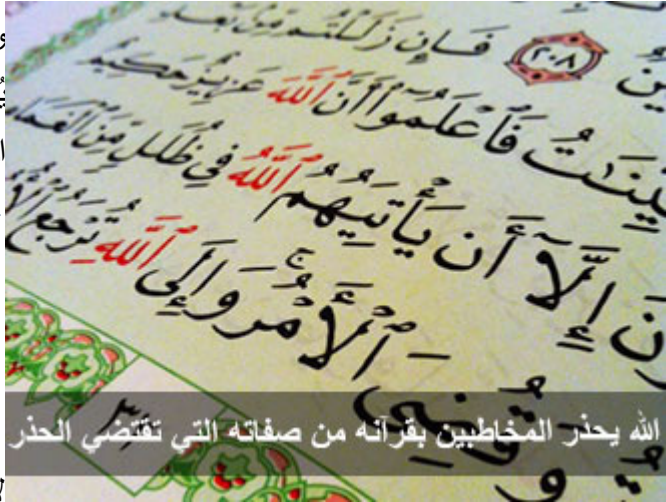 ين ٢٠٨ فَإِن زَلَلْتُم مِّنۢ بَعْدِ
ٱلْبَيِّنَٰتُ فَٱعْلَمُوٓا۟ أَنَّ ٱللَّهَ عَزِيزٌ حَكِيمٌ
إِلَّآ أَن يَأْتِيَهُمُ ٱللَّهُ فِى ظُلَلٍ مِّنَ ٱلْغَمَامِ
وَقُضِىَ ٱلْأَمْرُ ۚ وَإِلَى ٱللَّهِ تُرْجَعُ
الله يحذر المخاطبين بقرآنه من صفاته التي تقتضي الحذر